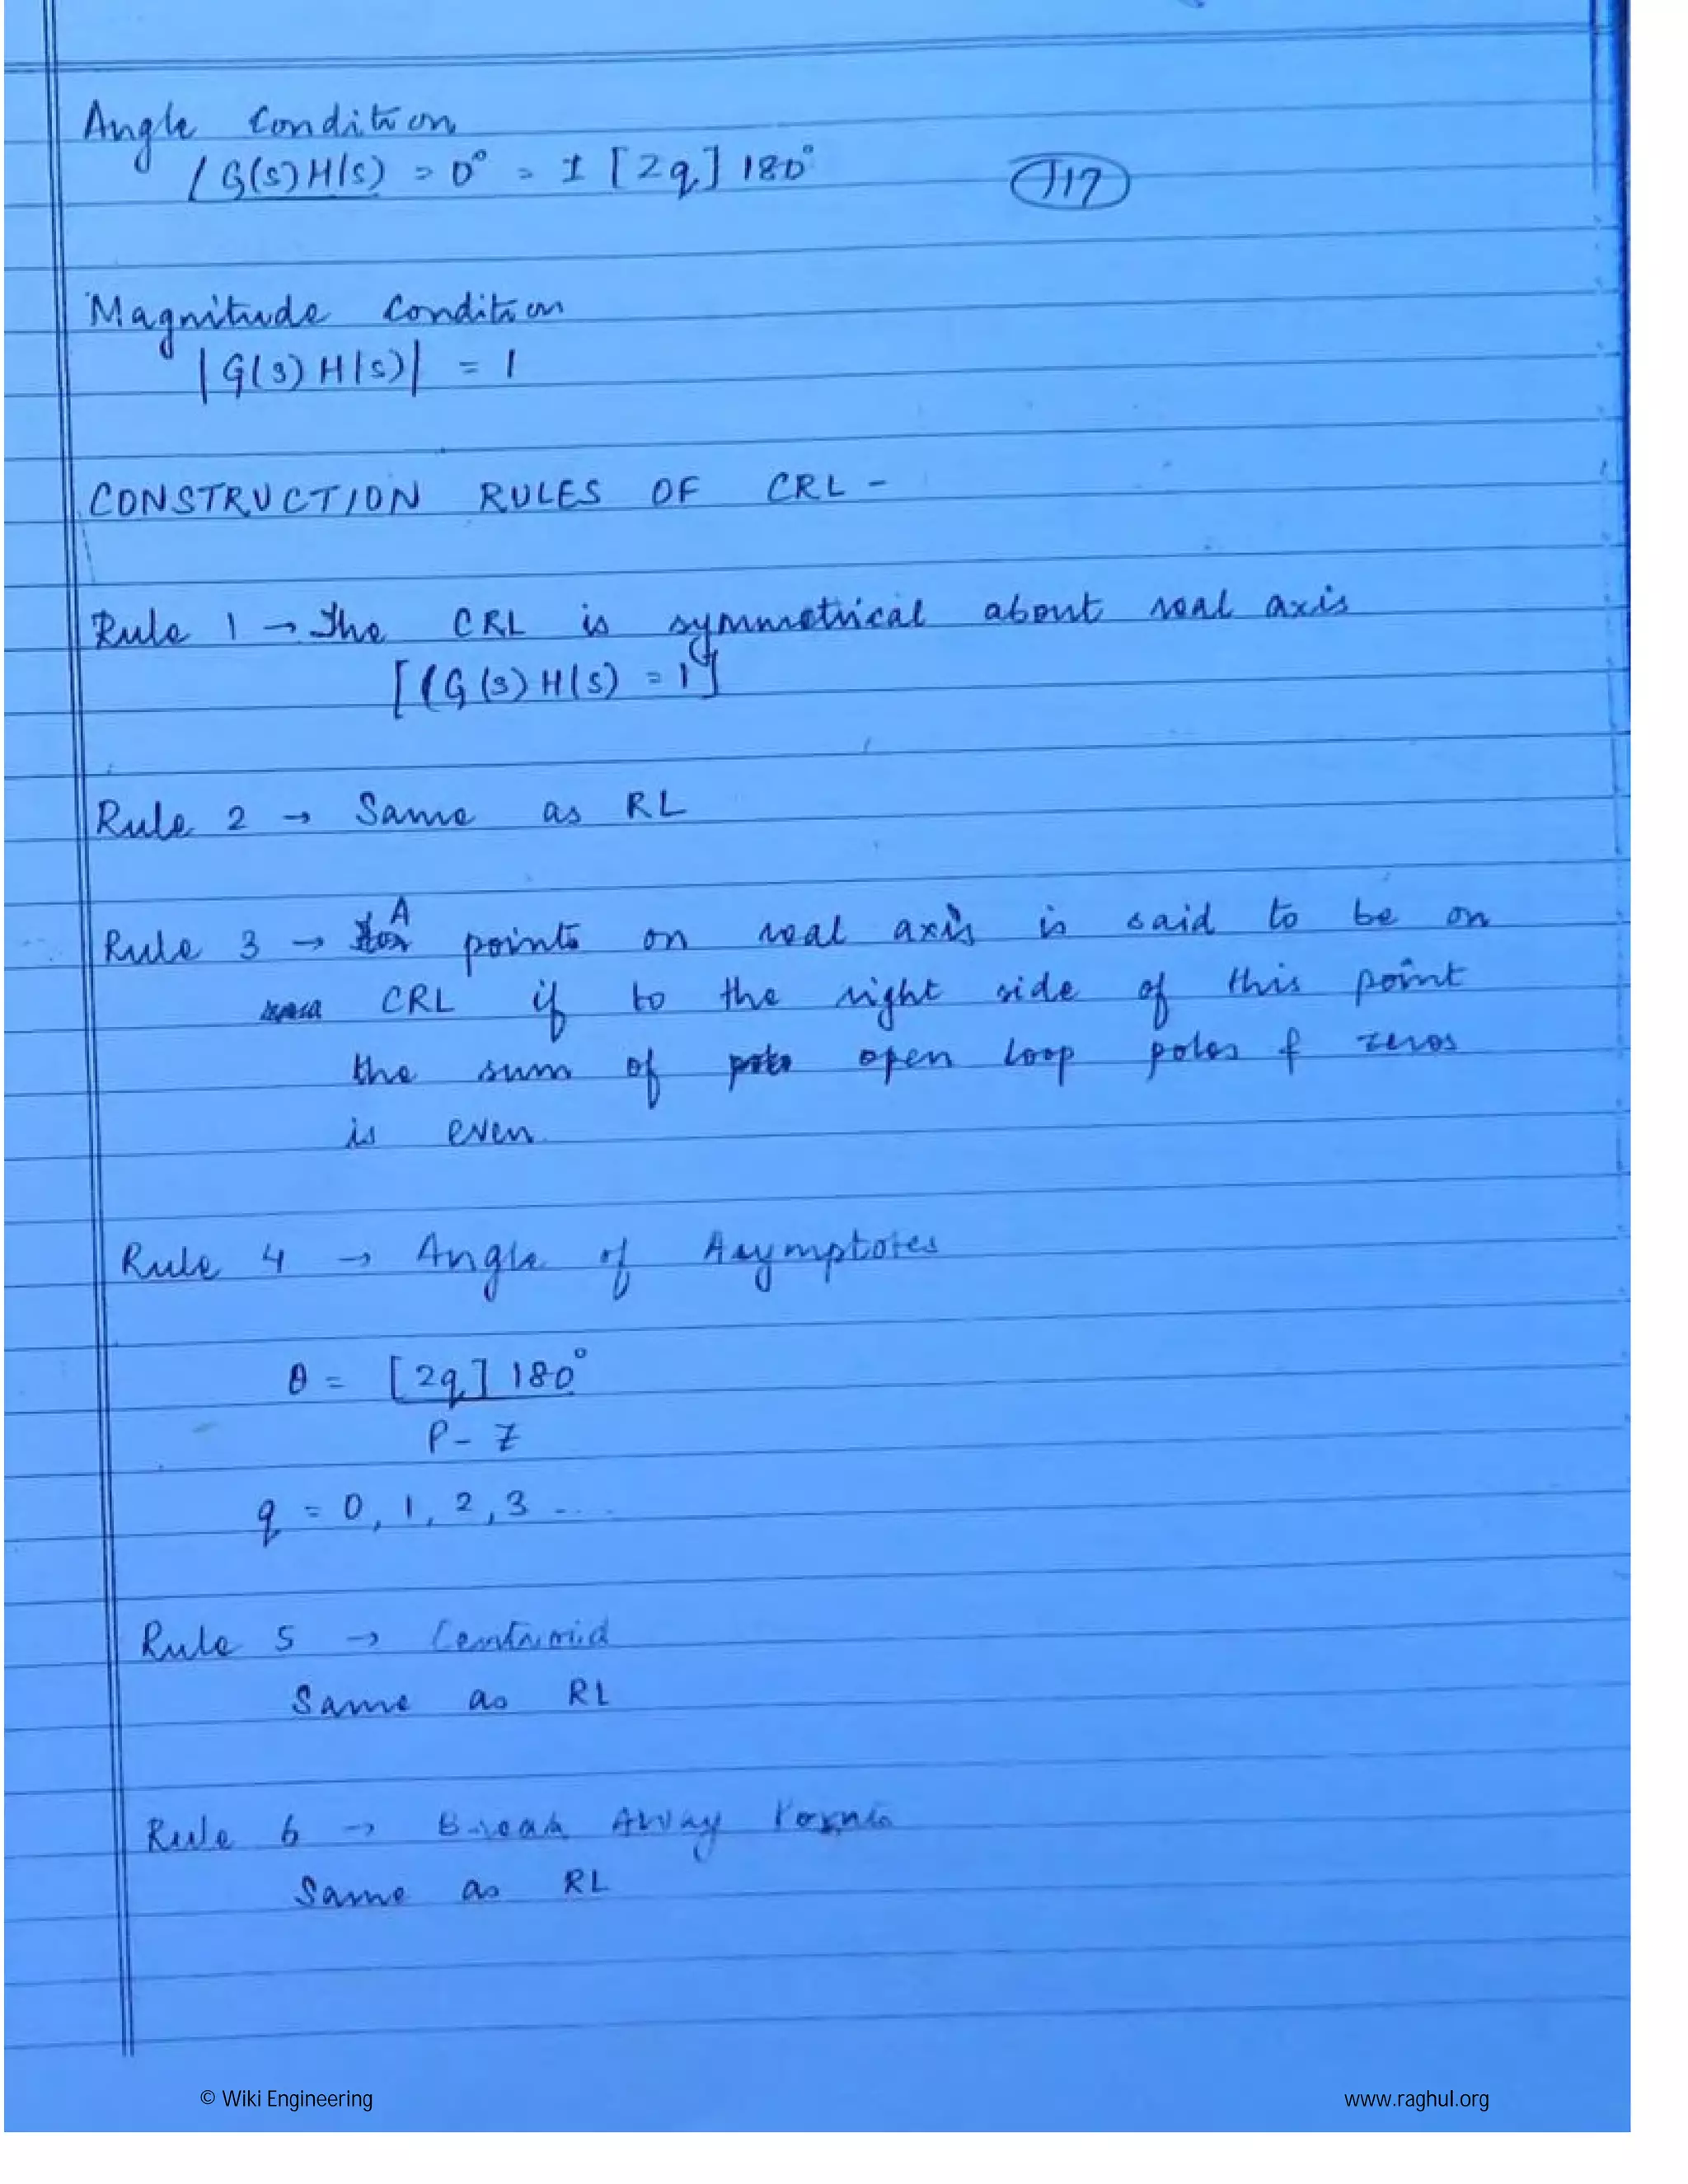 Angle Condition
∠G(s)H(s) = 0° = ± [2q] 180°
117
Magnitude Condition
|G(s) H(s)| = 1
CONSTRUCTION RULES OF CRL -
Rule 1 → The CRL is symmetrical about real axis
[(G(s) H(s) = 1]
Rule 2 → Same as RL
Rule 3 → A points on real axis is said to be on
CRL if to the right side of this point
the sum of open loop poles & zeros
is even
Rule 4 → Angle of Asymptotes
θ = [2q] 180°
P - Z
q = 0, 1, 2, 3 ....
Rule 5 → Centroid
Same as RL
Rule 6 → Break Away Points
Same as RL
© Wiki Engineering
www.raghul.org